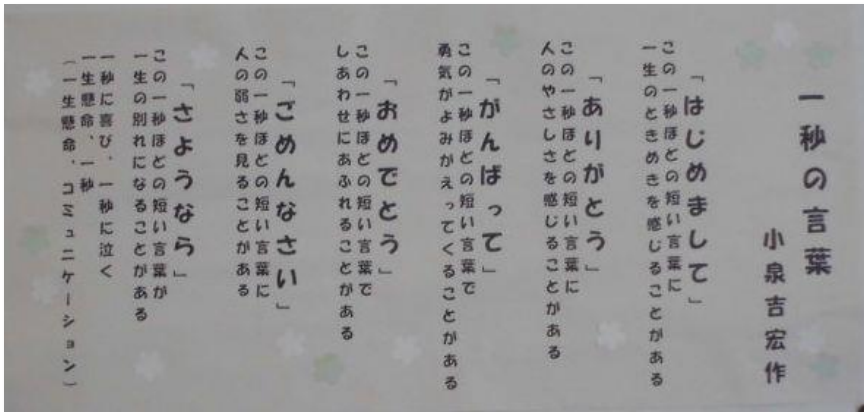 一秒の言葉
小泉吉宏作
「はじめまして」
この一秒ほどの短い言葉に
一生のときめきを感じることがある
「ありがとう」
この一秒ほどの短い言葉に
人のやさしさを感じることがある
「がんばって」
この一秒ほどの短い言葉で
勇気がよみがえってくることがある
「おめでとう」
この一秒ほどの短い言葉で
しあわせにあふれることがある
「ごめんなさい」
この一秒ほどの短い言葉に
人の弱さを見ることがある
「さようなら」
この一秒ほどの短い言葉が
一生の別れになることがある
一秒に喜び、一秒に泣く
一生懸命、一秒
(一生懸命、コミュニケーション)